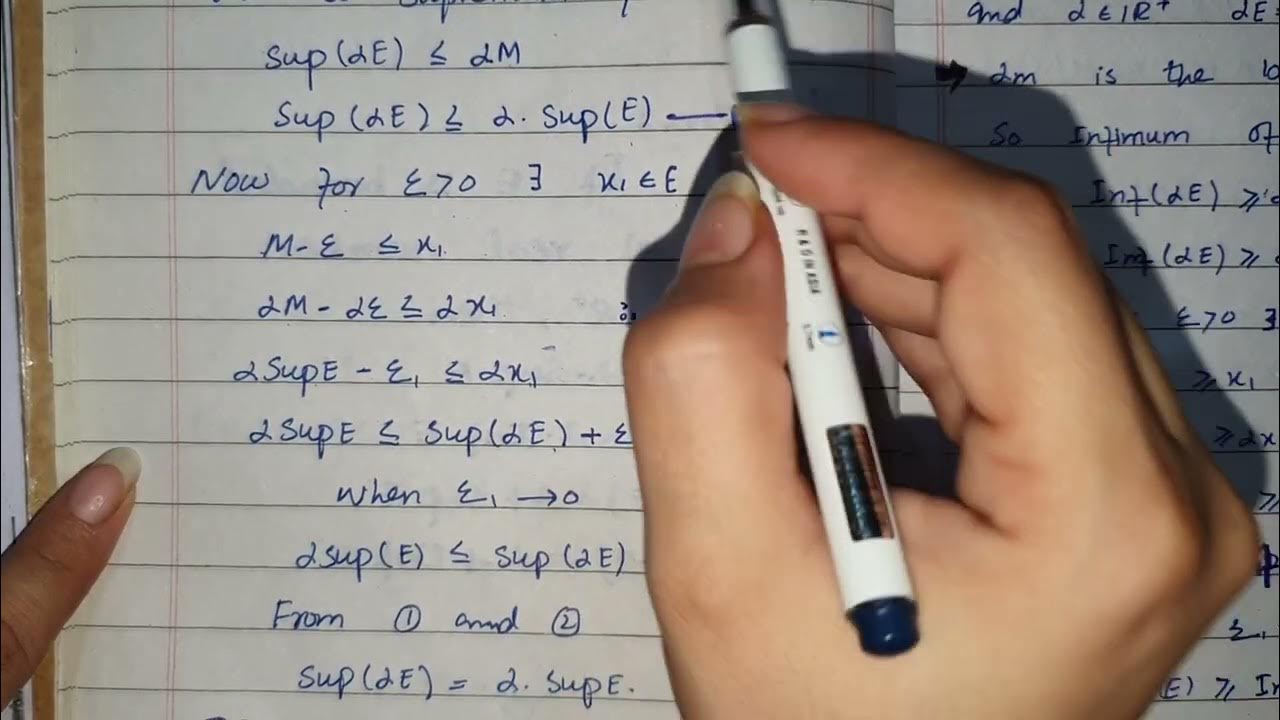 Sup(αE) ≤ αM
Sup(αE) ≤ α. Sup(E) —
Now for ε>0 ∃ x₁∈E
M-ε ≤ x₁
αM - αε ≤ αx₁
αSupE - ε₁ ≤ αx₁
αSupE ≤ Sup(αE) + ε
when ε₁ → 0
αSup(E) ≤ Sup(αE)
From ① and ②
Sup(αE) = α. SupE.
and α∈IR⁺ αE
αm is the
So Infimum of
Inf(αE) ≥
Inf(αE) ≥
ε>0 ∃
≥ x₁
≥ αx
≥
ε₁
(E) ≥ In